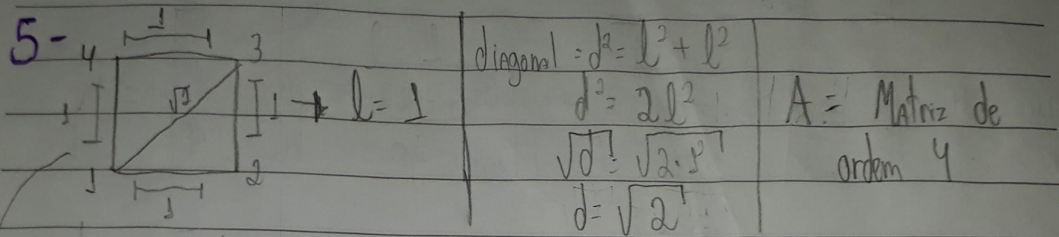 5-
1
4 3
1 √2 1 → l = 1
1 2
1
diagonal = d² = l² + l²
d² = 2l²
√d² = √2·1²
d = √2
A = Matriz de
ordem 4